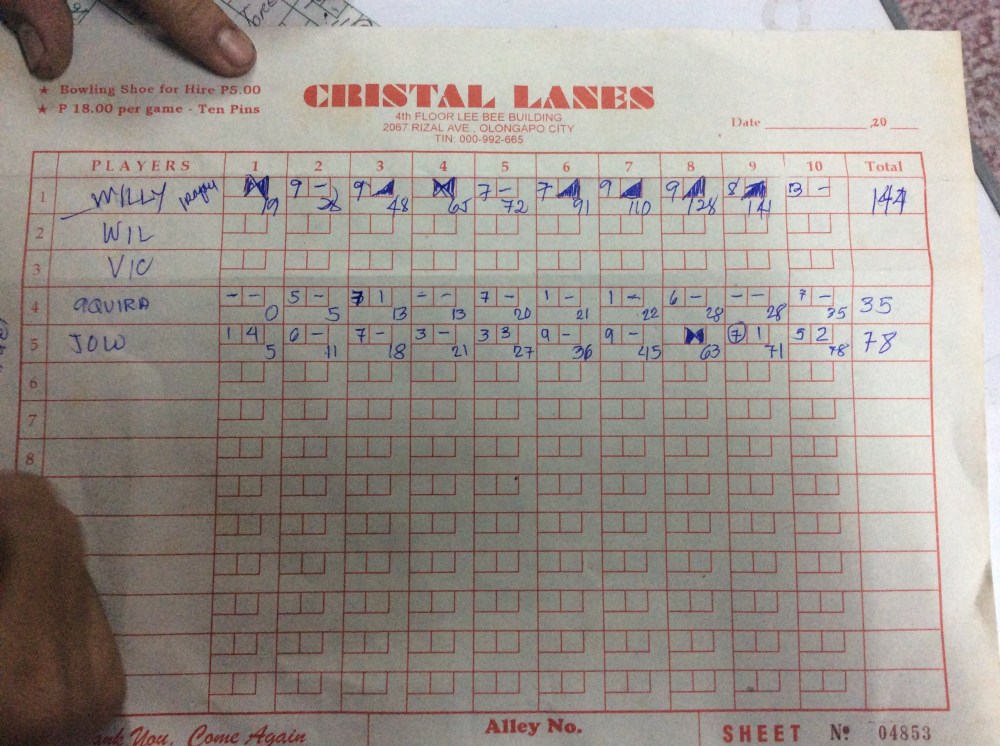 ★ Bowling Shoe for Hire P5.00
★ P 18.00 per game - Ten Pins
CRISTAL LANES
4th FLOOR LEE BEE BUILDING
2067 RIZAL AVE., OLONGAPO CITY
TIN: 000-992-665
Date ,20
PLAYERS 1 2 3 4 5 6 7 8 9 10 Total
1 WILLY 9 - 9 7 - 7 9 9 8 3 - 144
19 28 48 65 72 91 110 128 141
2 WIL
3 VIC
4 AQUIRA - - 5 - 7 1 - - 7 - 1 - 1 - 6 - - - 7 - 35
0 5 13 13 20 21 22 28 28 35
5 JOLO 1 4 6 - 7 - 3 - 3 3 9 - 9 - 7 1 5 2 78
5 11 18 21 27 36 45 63 71 78
6
7
8
You, Come Again
Alley No.
SHEET Nº 04853